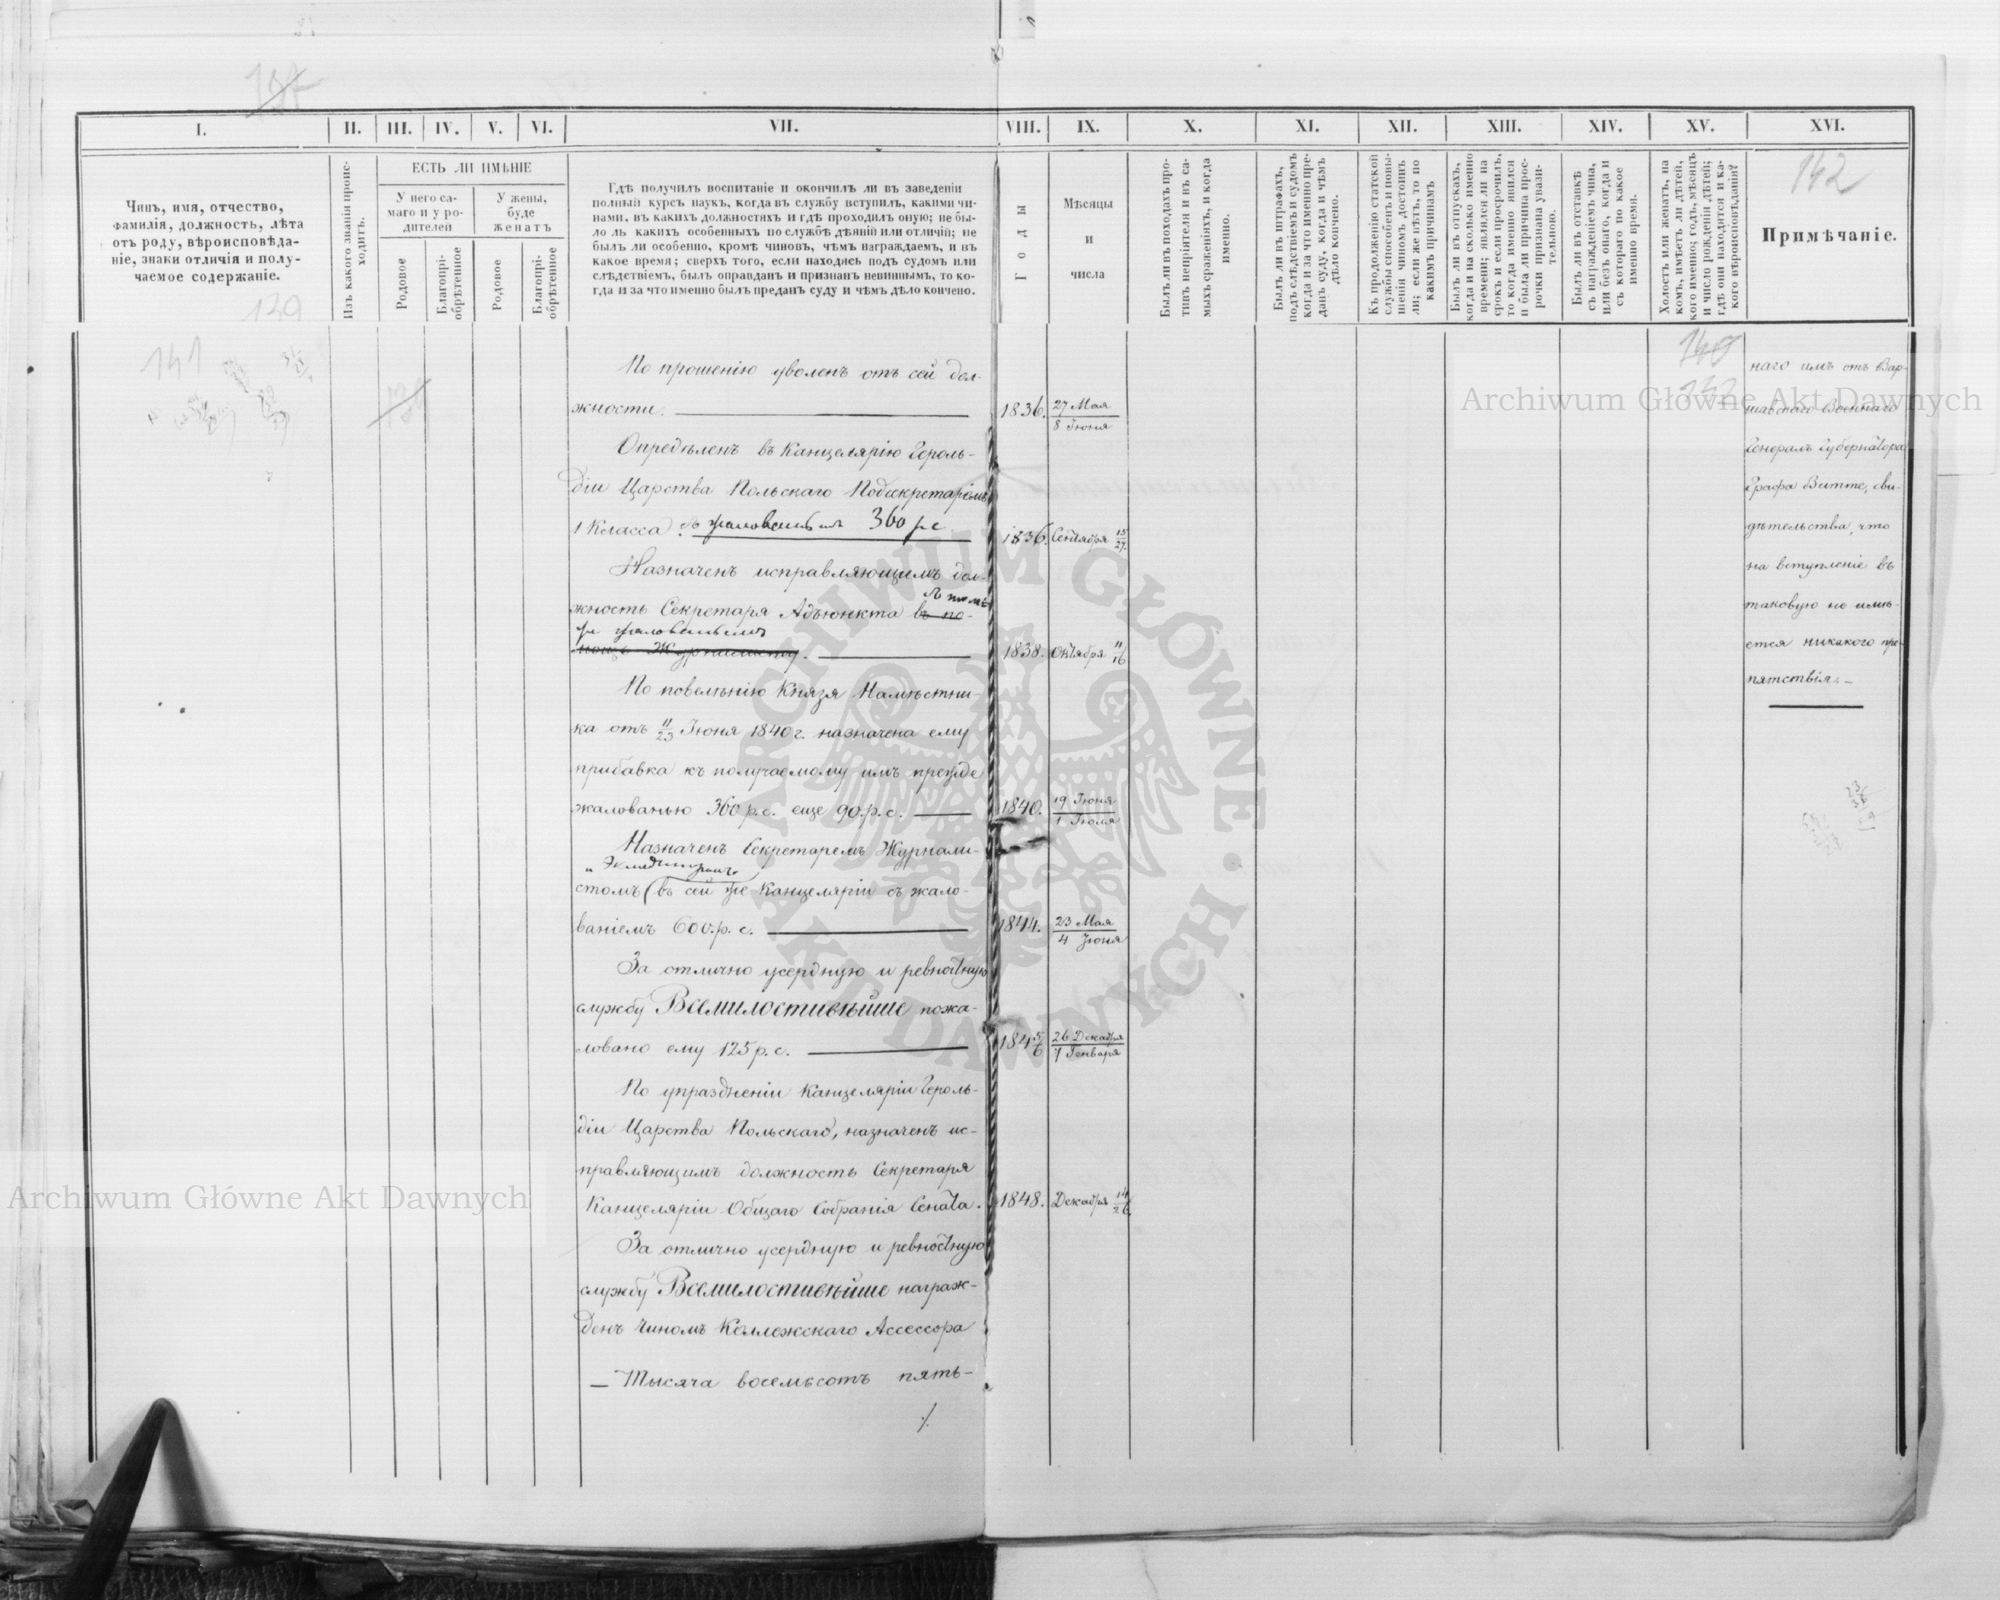 I. II. III. IV. V. VI. VII. VIII. IX. X. XI. XII. XIII. XIV. XV. XVI.
Чинъ, имя, отчество,
фамилія, должность, лѣта
отъ роду, вѣроисповѣда-
ніе, знаки отличія и полу-
чаемое содержаніе.
Изъ какого званія проис-
ходитъ.
ЕСТЬ ЛИ ИМѢНІЕ
У него са-
маго и у ро-
дителей
У жены,
буде
женатъ
Родовое
Благопрі-
обрѣтенное
Родовое
Благопрі-
обрѣтенное
Гдѣ получилъ воспитаніе и окончилъ ли въ заведеніи
полный курсъ наукъ, когда въ службу вступилъ, какими чи-
нами, въ какихъ должностяхъ и гдѣ проходилъ оную; не бы-
ло ль какихъ особенныхъ по службѣ дѣяній или отличій; не
былъ ли особенно, кромѣ чиновъ, чѣмъ награждаемъ, и въ
какое время; сверхъ того, если находясь подъ судомъ или
слѣдствіемъ, былъ оправданъ и признанъ невиннымъ, то ко-
гда и за что именно былъ преданъ суду и чѣмъ дѣло кончено.
Годы
Мѣсяцы
и
числа
Былъ ли въ походахъ про-
тивъ непріятеля и въ са-
мыхъ сраженіяхъ, и когда
именно.
Былъ ли въ штрафахъ,
подъ слѣдствіемъ и судомъ
когда и за что именно пре-
данъ суду, когда и чѣмъ
дѣло кончено.
Къ продолженію статской
службы способенъ и повы-
шенія чиномъ достоинъ
ли; если же нѣтъ, то по
какимъ причинамъ
Былъ ли въ отпускахъ,
когда и на сколько именно
времени; явился ли на
срокъ и если просрочилъ,
то когда именно явился
и была ли причина прос-
рочки признана уважи-
тельною.
Былъ ли въ отставкѣ
съ награжденіемъ чина,
или безъ онаго, когда и
съ котораго по какое
именно время.
Холостъ или женатъ, на
комъ, имѣетъ ли дѣтей,
кого именно; годъ, мѣсяцъ
и число рожденія дѣтей;
гдѣ они находятся и ка-
кого вѣроисповѣданія?
142
Примѣчаніе.
139
141
140
132
По прошенію уволенъ отъ сей дол-
жности. 1836. 27 Мая / 8 Іюня
Опредѣленъ въ Канцелярію Героль-
діи Царства Польскаго Подсекретаремъ
1 Класса съ жалованьемъ 360 р.с. 1836. Сентября 15/27
Назначенъ исправляющимъ дол-
жность Секретаря Адъюнкта въ по-
же жалованьемъ
1838. Октября
По повелѣнію Князя Намѣстни-
ка отъ 11/23 Іюня 1840 г. назначена ему
прибавка къ получаемому имъ прежде
жалованью 360 р. с. еще 90. р. с. 1840. 19 Іюня / 1 Іюля
Назначенъ Секретаремъ Журнали-
стомъ (въ сей же Канцеляріи съ жало-
ваніемъ 600. р. с. 1844. 23 Мая / 4 Іюня
За отлично усердную и ревностную
службу Всемилостивѣйше пожа-
ловано ему 125 р. с. 1845/6 26 Декабря / 7 Генваря
По упраздненіи Канцеляріи Героль-
діи Царства Польскаго, назначенъ ис-
правляющимъ должность Секретаря
Канцеляріи Общаго Собранія Сената. 1848. Декабря 14/26
За отлично усердную и ревностную
службу Всемилостивѣйше награж-
денъ Чиномъ Коллежскаго Ассессора
— Тысяча восемьсотъ пять-
./.
наго имъ отъ Вар-
шавскаго Военнаго
Генералъ Губернатора
Графа Витте, сви-
дѣтельства, что
на вступленіе въ
таковую не имѣ-
ется никакого пре-
пятствія. —
Archiwum Główne Akt Dawnych
Archiwum Główne Akt Dawnych
ARCHIWUM GŁÓWNE AKT DAWNYCH